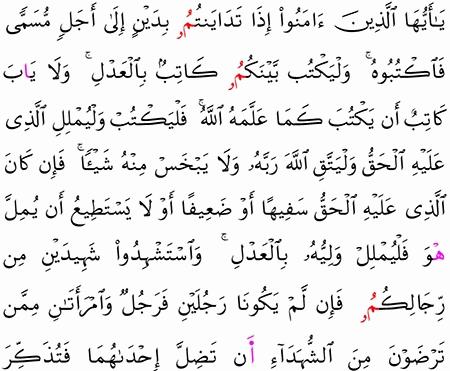 يَـٰٓأَيُّهَا ٱلَّذِينَ ءَامَنُوٓا۟ إِذَا تَدَايَنتُمُۥ بِدَيْنٍ إِلَىٰٓ أَجَلٍ مُّسَمًّى
فَٱكْتُبُوهُ ۚ وَلْيَكْتُب بَّيْنَكُمُۥ كَاتِبٌۢ بِٱلْعَدْلِ ۚ وَلَا يَابَ
كَاتِبٌ أَن يَكْتُبَ كَمَا عَلَّمَهُ ٱللَّهُ ۚ فَلْيَكْتُبْ وَلْيُمْلِلِ ٱلَّذِى
عَلَيْهِ ٱلْحَقُّ وَلْيَتَّقِ ٱللَّهَ رَبَّهُۥ وَلَا يَبْخَسْ مِنْهُ شَيْـًٔا ۚ فَإِن كَانَ
ٱلَّذِى عَلَيْهِ ٱلْحَقُّ سَفِيهًا أَوْ ضَعِيفًا أَوْ لَا يَسْتَطِيعُ أَن يُمِلَّ
هْوَ فَلْيُمْلِلْ وَلِيُّهُۥ بِٱلْعَدْلِ ۚ وَٱسْتَشْهِدُوا۟ شَهِيدَيْنِ مِن
رِّجَالِكُمُۥ فَإِن لَّمْ يَكُونَا رَجُلَيْنِ فَرَجُلٌ وَٱمْرَأَتَانِ مِمَّن
تَرْضَوْنَ مِنَ ٱلشُّهَدَآءِ أَن تَضِلَّ إِحْدَىٰهُمَا فَتُذَكِّرَ